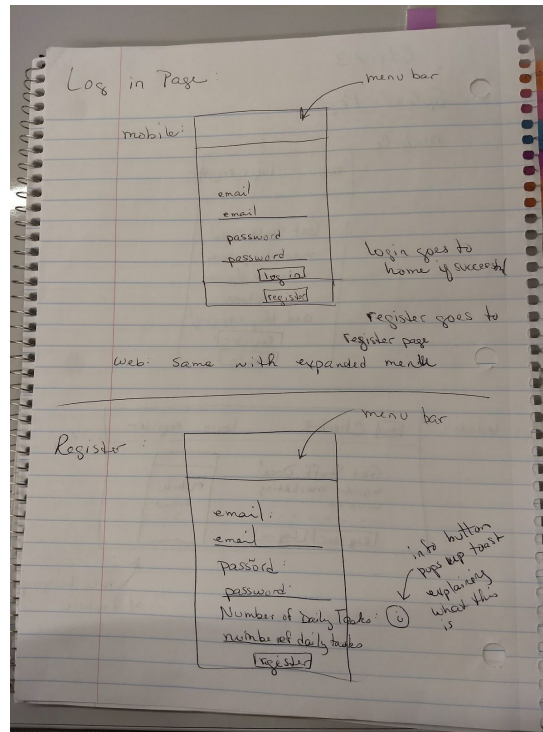 Log in Page:
menu bar
mobile:
email
email
password
password
log in
register
login goes to
home if successful
register goes to
register page
web: same with expanded menu
menu bar
Register:
email:
email
password:
password
Number of Daily Tasks: i
number of daily tasks
register
info button
pops up toast
explaining
what this
is